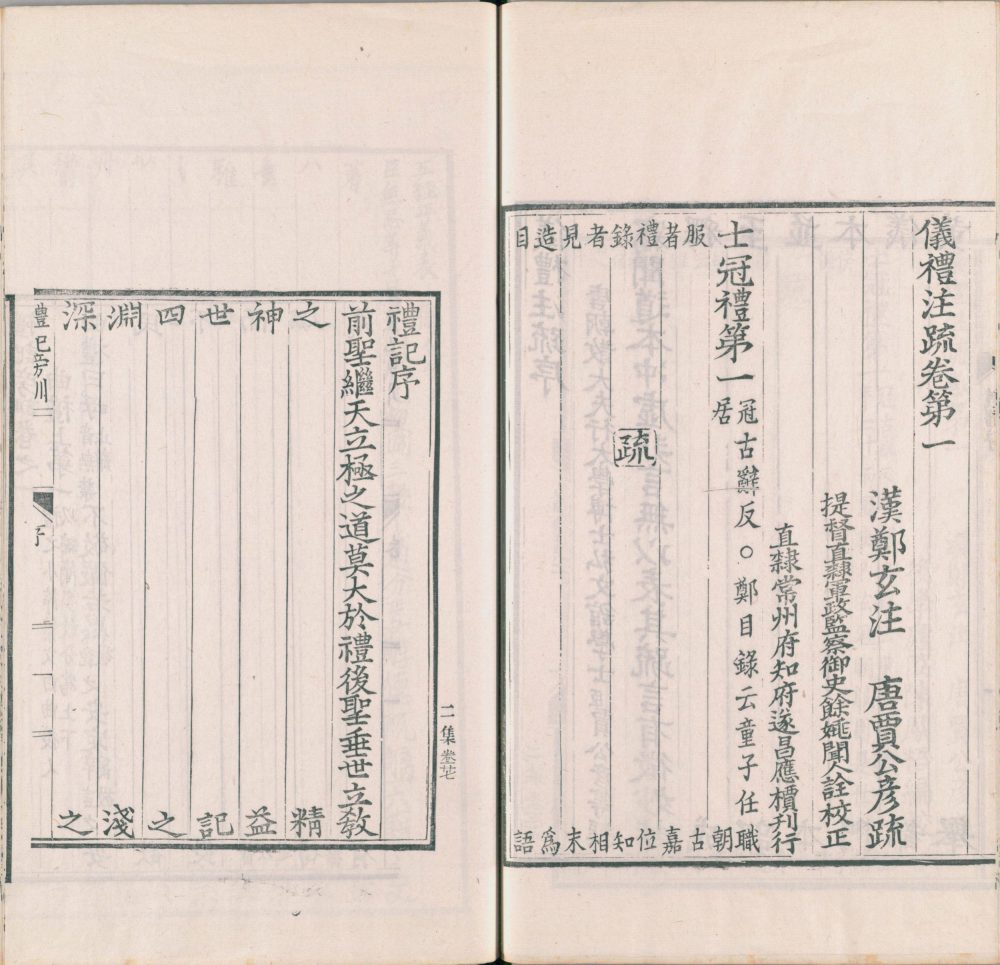 儀禮注疏卷第一
漢鄭玄注 唐賈公彥疏
提督直隸軍政監察御史餘姚聞人詮校正
直隸常州府知府遂昌應檟刊行
士冠禮第一 冠古辭反○鄭目錄云童子任職
居 朝
服 古
者 嘉
禮 位
錄 知
疏
者 相
見 末
造 爲
目 語
二集
禮記序
前聖繼天立極之道莫大於禮後聖垂世立教
之 精
神 益
世 記
四 之
淵 淺
深 之
序 一